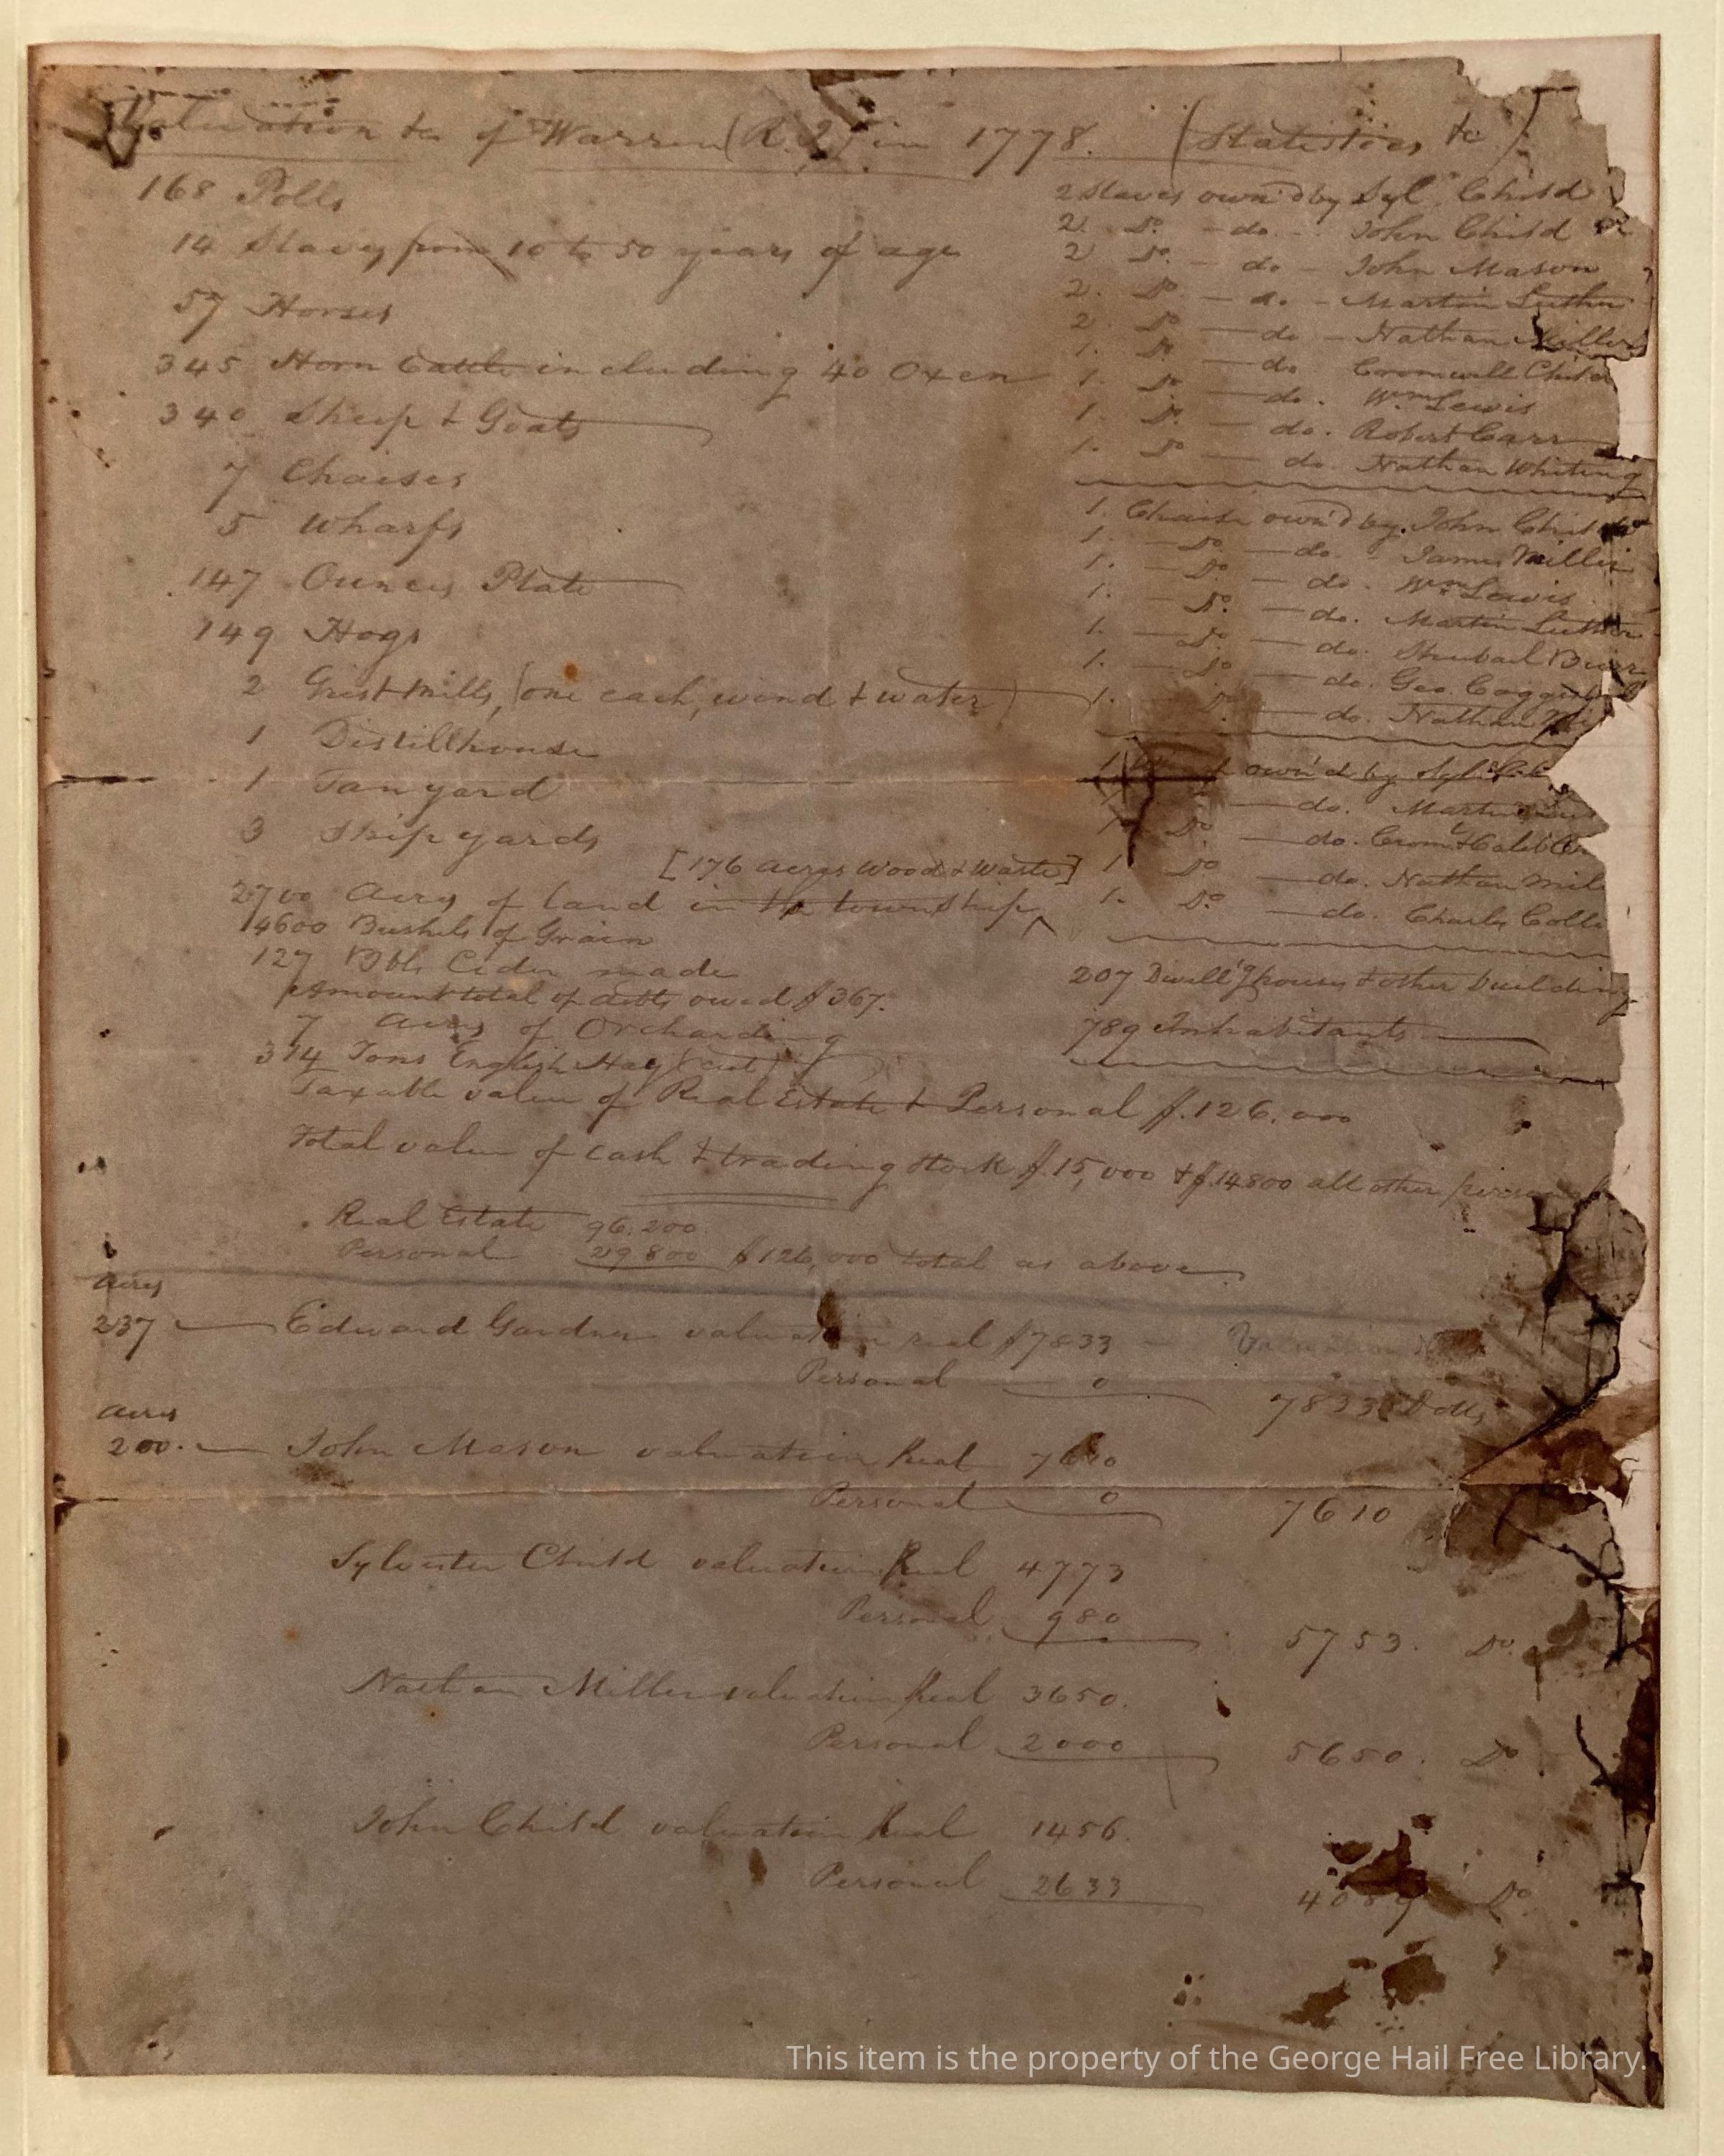 Valuation &c of Warren (R.I.) in 1778. (Statistics &c)
168 Polls
14 Slaves from 10 to 50 years of age
57 Horses
345 Horn Cattle including 40 Oxen
340 Sheep & Goats
7 Chaises
5 Wharfs
147 Ounces Plate
149 Hogs
2 Grist Mills, (one each, wind & water)
1 Distillhouse
1 Tanyard
3 Ship yards
[176 acres Wood & Waste]
2700 Acres of land in the township ^
14600 Bushels of Grain
127 Bbls Cider made
Amount total of debts owed $367.
7 Acres of Orcharding
314 Tons English Hay (cut)
2 Slaves own'd by Syl. Child
2. Do. - do. - John Child
2 Do. - do - John Mason
2. Do - do - Martin Luther
2. Do - do - Nathan Miller
1. Do - do Cromwell Child
1. Do - do. Wm Lewis
1. Do - do. Robert Carr
1. Do - do. Nathan Whiting
1. Chaise own'd by John Child
1. - Do - do. - James Miller
1. - Do - do. Wm Lewis
1. - Do. - do. Martin Luther
1. - Do. - do. Shubael Burr
1. - Do - do. Geo. Coggeshall
1. - Do - do. Nathan
1 own'd by Syl.
- do. Martin
1 Do - do. Crom.l & Caleb
1 Do - do. Nathan Mil
1. Do. - do. Charles Colli
207 Dwell'g houses & other building
789 Inhabitants
Taxable value of Real Estate & Personal $.126.000
Total value of cash & trading stock $.15,000 & $.14800 all other
Real Estate 96.200.
Personal 29800 $126,000 total as above
Acres
237 - Edward Gardner valuation real $7833 - Valuation
Personal 0 7833 Dolls
Acres
200. - John Mason valuation Real 7610
Personal 0 7610
Sylvester Child valuation Real 4773
Personal 980 5753. Do.
Nathan Miller valuation Real 3650.
Personal 2000 5650. Do
John Child valuation Real 1456.
Personal 2633 4089 Do.
This item is the property of the George Hail Free Library.